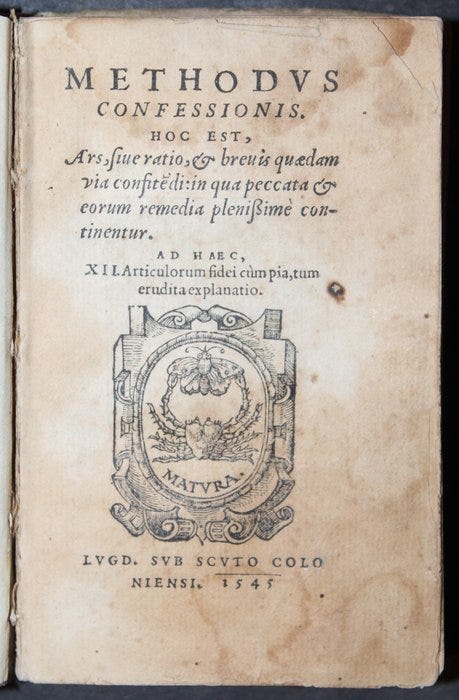 METHODVS
CONFESSIONIS.
HOC EST,
Ars, siue ratio, & breuis quædam
via confitẽdi: in qua peccata &
eorum remedia plenißimè con-
tinentur.
AD HAEC,
XII. Articulorum fidei cùm pia, tum
erudita explanatio.
MATVRA.
LVGD. SVB SCVTO COLO
NIENSI. 1545